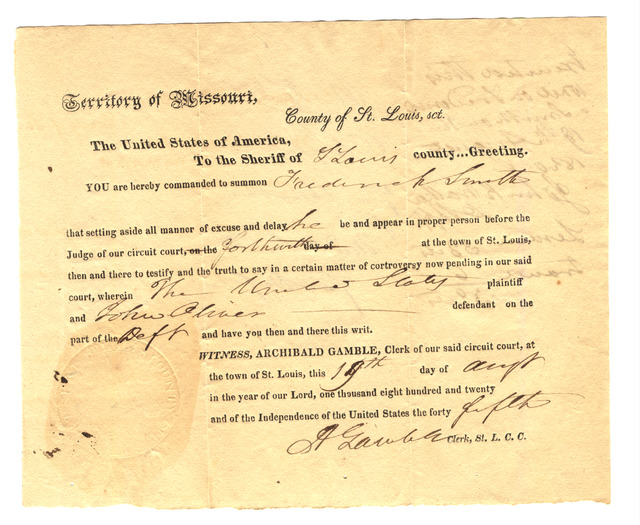 Territory of Missouri,
County of St. Louis, sct.
The United States of America,
To the Sheriff of St Louis county...Greeting.
YOU are hereby commanded to summon Frederick Smith
that setting aside all manner of excuse and delay, he be and appear in proper person before the
Judge of our circuit court, on the forthwith day of at the town of St. Louis,
then and there to testify and the truth to say in a certain matter of controversy now pending in our said
court, wherein The United States plaintiff
and John Oliver defendant on the
part of the Deft and have you then and there this writ.
WITNESS, ARCHIBALD GAMBLE, Clerk of our said circuit court, at
the town of St. Louis, this 19th day of Augt
in the year of our Lord, one thousand eight hundred and twenty
and of the Independence of the United States the forty fifth
A Gamble Clerk, St. L. C. C.